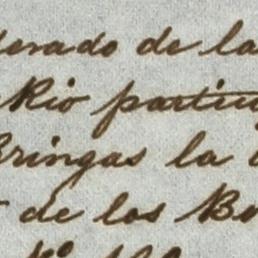 derado de la
Rio particu
Bringas la
de los Bo